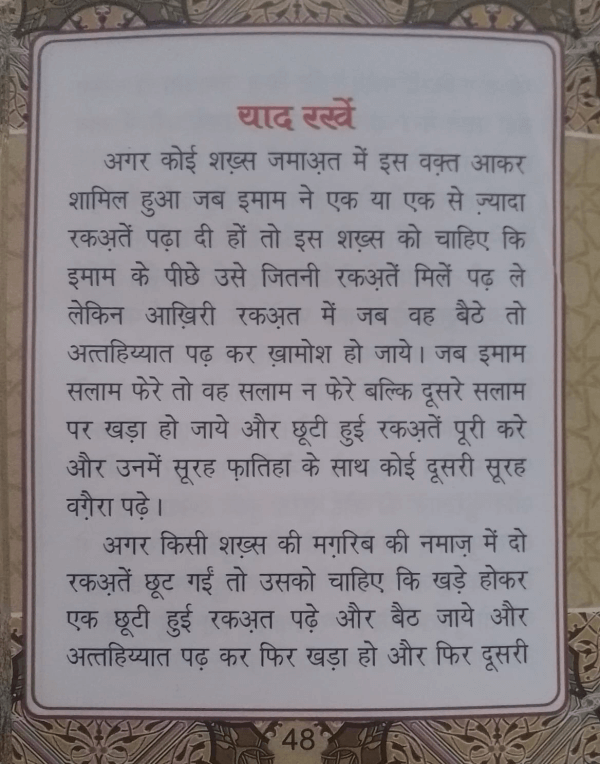 याद रखें
अगर कोई शख़्स जमाअ़त में इस वक़्त आकर
शामिल हुआ जब इमाम ने एक या एक से ज़्यादा
रकअ़तें पढ़ा दी हों तो इस शख़्स को चाहिए कि
इमाम के पीछे उसे जितनी रकअ़तें मिलें पढ़ ले
लेकिन आख़िरी रकअ़त में जब वह बैठे तो
अत्तहिय्यात पढ़ कर ख़ामोश हो जाये। जब इमाम
सलाम फेरे तो वह सलाम न फेरे बल्कि दूसरे सलाम
पर खड़ा हो जाये और छूटी हुई रकअ़तें पूरी करे
और उनमें सूरह फ़ातिहा के साथ कोई दूसरी सूरह
वग़ैरा पढ़े।
अगर किसी शख़्स की मग़रिब की नमाज़ में दो
रकअ़तें छूट गईं तो उसको चाहिए कि खड़े होकर
एक छूटी हुई रकअ़त पढ़े और बैठ जाये और
अत्तहिय्यात पढ़ कर फिर खड़ा हो और फिर दूसरी
48